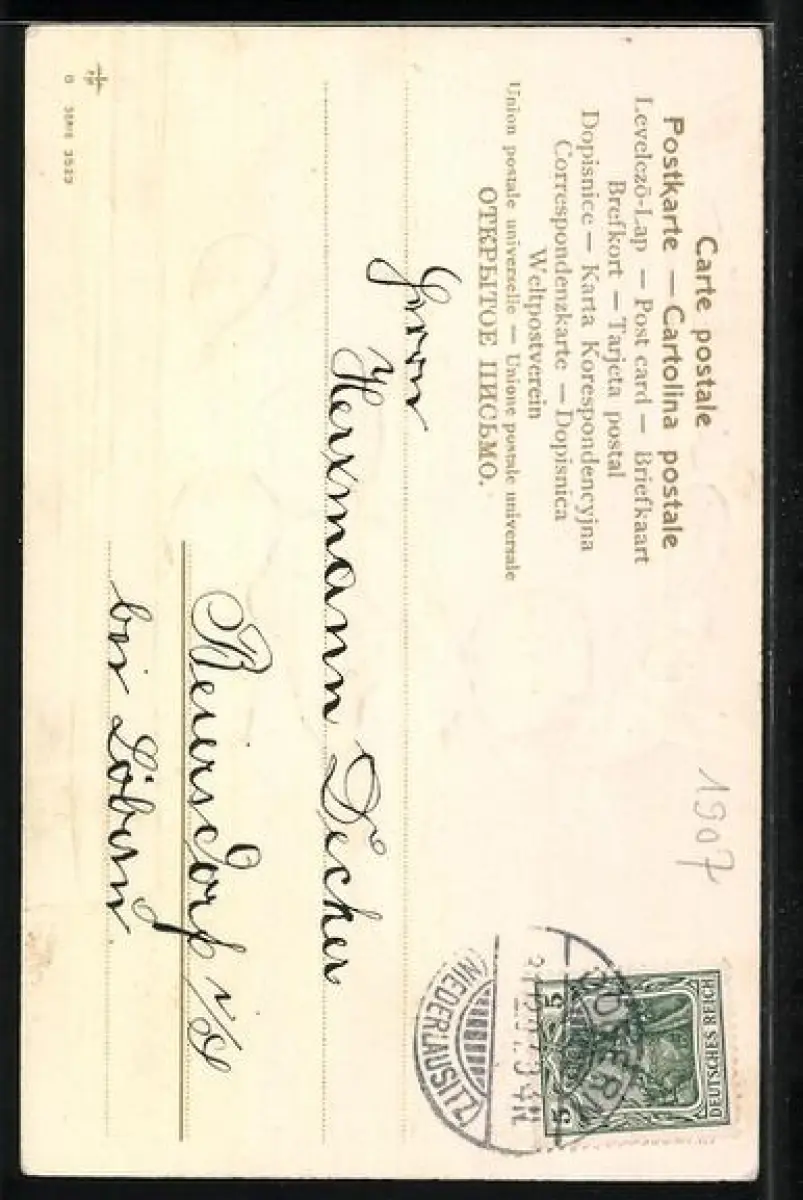 Carte postale
Postkarte — Cartolina postale
Levelező-Lap — Post card — Briefkaart
Brefkort — Tarjeta postal
Dopisnice — Karta Korespondencyjna
Correspondenzkarte — Dopisnica
Weltpostverein
Union postale universelle — Unione postale universale
ОТКРЫТОЕ ПИСЬМО.
1907
DEUTSCHES REICH
5 5
(NIEDERLAUSITZ)
Herrn
Herrmann
bei Löbau
SERIE 3523